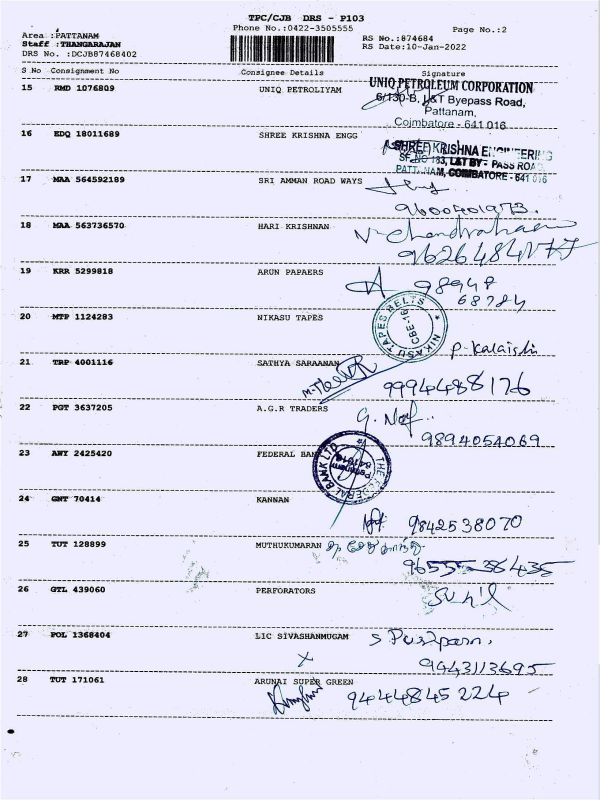 TPC/CJB DRS - P103
Phone No.:0422-3505555 Page No.:2
Area :PATTANAM
Staff :THANGARAJAN
DRS No. :DCJB87468402
RS No.:874684
RS Date:10-Jan-2022
S No Consignment No Consignee Details Signature
15 RMD 1076809 UNIQ PETROLIYAM
UNIQ PETROLEUM CORPORATION
6/130-B, L&T Byepass Road,
Pattanam,
Coimbatore - 641 016
16 EDQ 18011689 SHREE KRISHNA ENGG
SHREE KRISHNA ENGINEERING
SF.NO 183, L&T BY - PASS ROAD
PATTANAM, COIMBATORE - 641 016
17 MAA 564592189 SRI AMMAN ROAD WAYS
9600401973.
18 MAA 563736570 HARI KRISHNAN
19 KRR 5299818 ARUN PAPAERS
98948
68784
20 MTP 1124283 NIKASU TAPES
NIKASU TAPES BELTS
CBE-16
P. Kalaishi
21 TRP 4001116 SATHYA SARAANAN
9994488176
22 PGT 3637205 A.G.R TRADERS
9894054069
23 AWY 2425420 FEDERAL BANK
THE FEDERAL BANK LTD
Pattanam
641016
24 GNT 70414 KANNAN
9842538070
25 TUT 128899 MUTHUKUMARAN
96555-38435
26 GTL 439060 PERFORATORS
Sunil
27 POL 1368404 LIC SIVASHANMUGAM
S Pushpam.
X
9443113695
28 TUT 171061 ARUNAI SUPER GREEN
9444845224